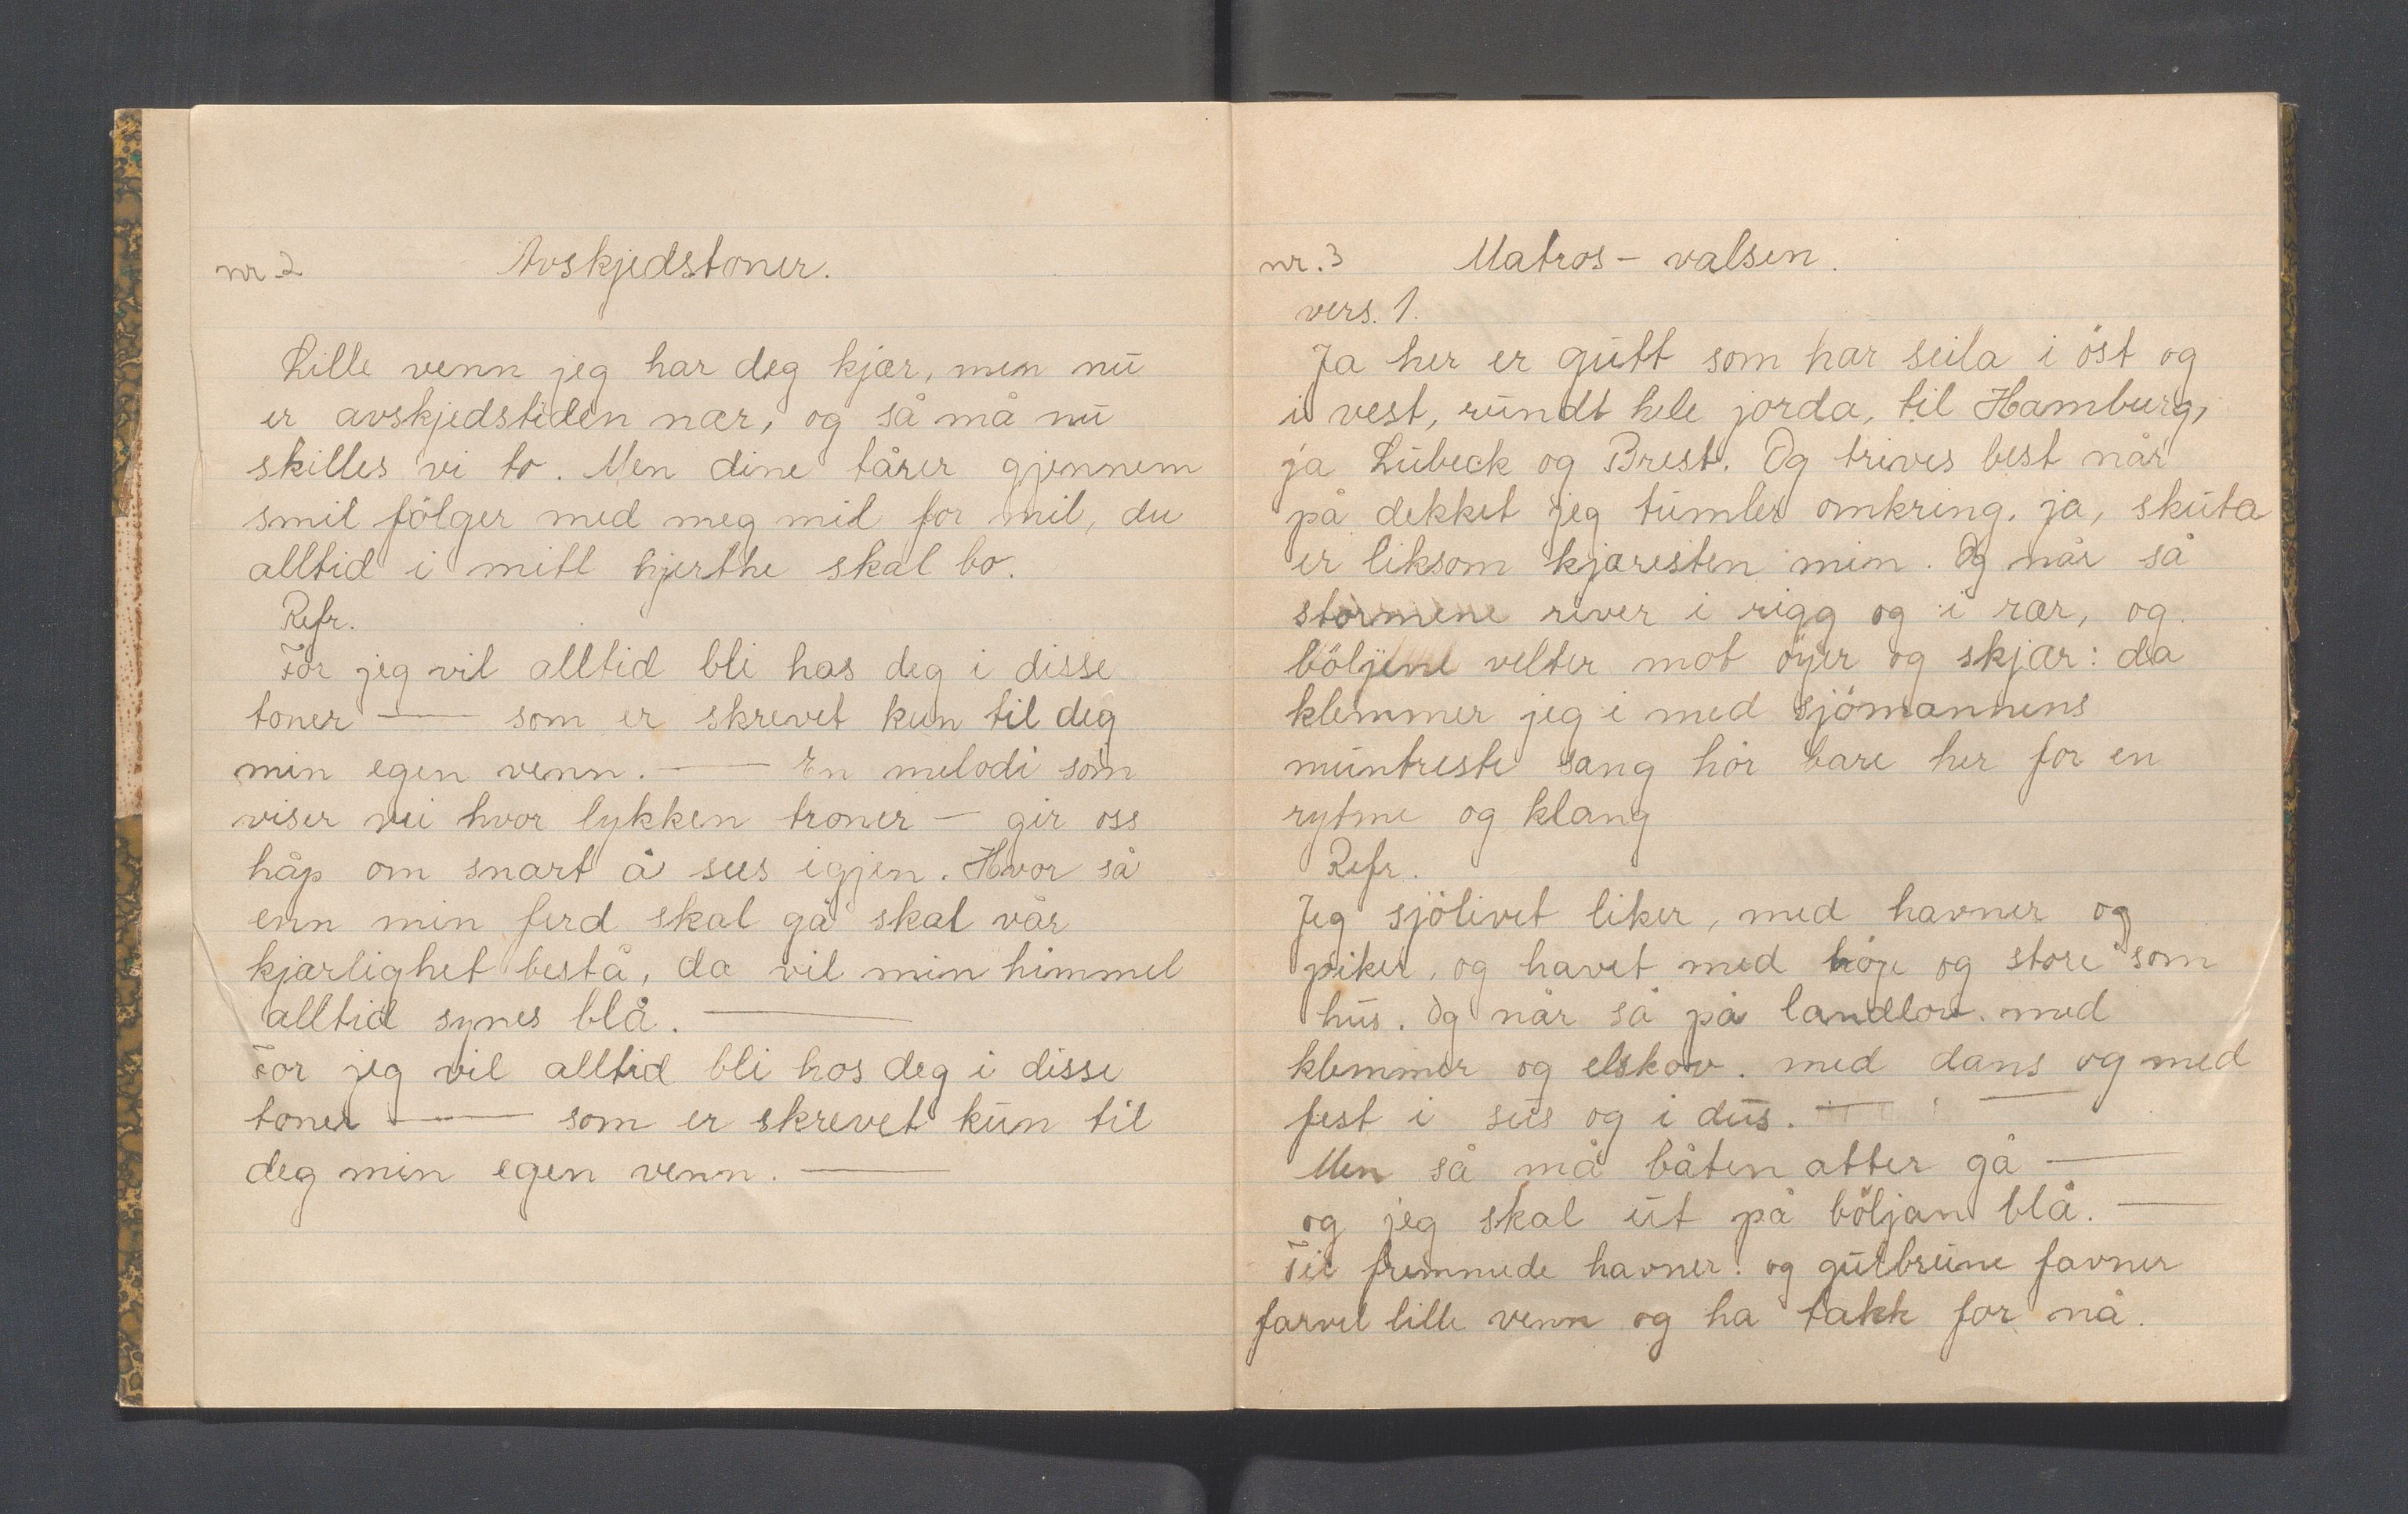 nr 2 Avskjedstoner.
Lille venn jeg har deg kjær, men nu
er avskjedstiden nær, og så må nu
skilles vi to. Men dine tårer gjennem
smil fölger med meg mil for mil, du
alltid i mitt hjerthe skal bo.
Refr.
For jeg vil alltid bli hos deg i disse
toner — som er skrevet kun til deg
min egen venn. — En melodi som
viser vei hvor lykken troner — gir oss
håp om snart å sees igjen. Hvor så
enn min ferd skal gå skal vår
kjærlighet bestå, da vil min himmel
alltid synes blå. —
For jeg vil alltid bli hos deg i disse
toner — som er skrevet kun til
deg min egen venn. —
nr. 3 Matros - valsen.
vers. 1.
Ja her er gutt som har seila i öst og
i vest, rundt hele jorda, til Hamburg,
ja Lübeck og Brest. Og trives best når
på dekket jeg tumler omkring. ja, skuta
er liksom kjæresten min. Og når så
stormene river i rigg og i rær, og
böljene velter mot öyer og skjær: da
klemmer jeg i med sjömannens
muntreste sang hör bare her for en
rytme og klang
Refr.
Jeg sjölivet liker, med havner og
piker, og havet med höje og store som
hus. Og når så på landlov. med
klemmer og elskov. med dans og med
fest i sus og i dus. — —
Men så må båten atter gå —
og jeg skal ut på böljan blå. —
Til fremmede havner. og gulbrune favner
farvel lille venn og ha takk for nå.